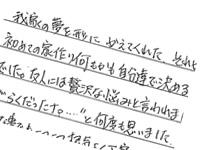 我家の夢を形にかえてくれた それと
初めての家作り何もかも自分達で決める
でした。友人には贅沢な悩みと言われま
らくだったな…”と何度も思いました